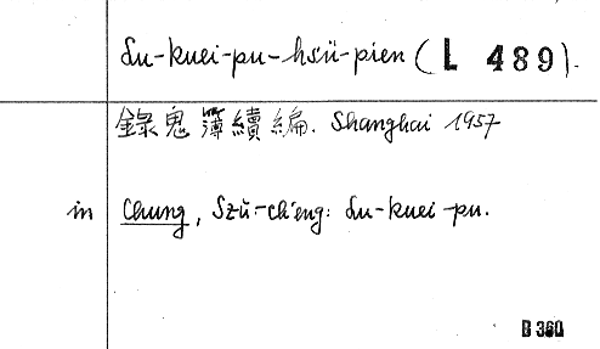 Lu-kuei-pu-hsü-pien (L 489).
錄鬼簿續編. Shanghai 1957
in Chung, Szŭ-ch'eng: Lu-kuei-pu.
B 360